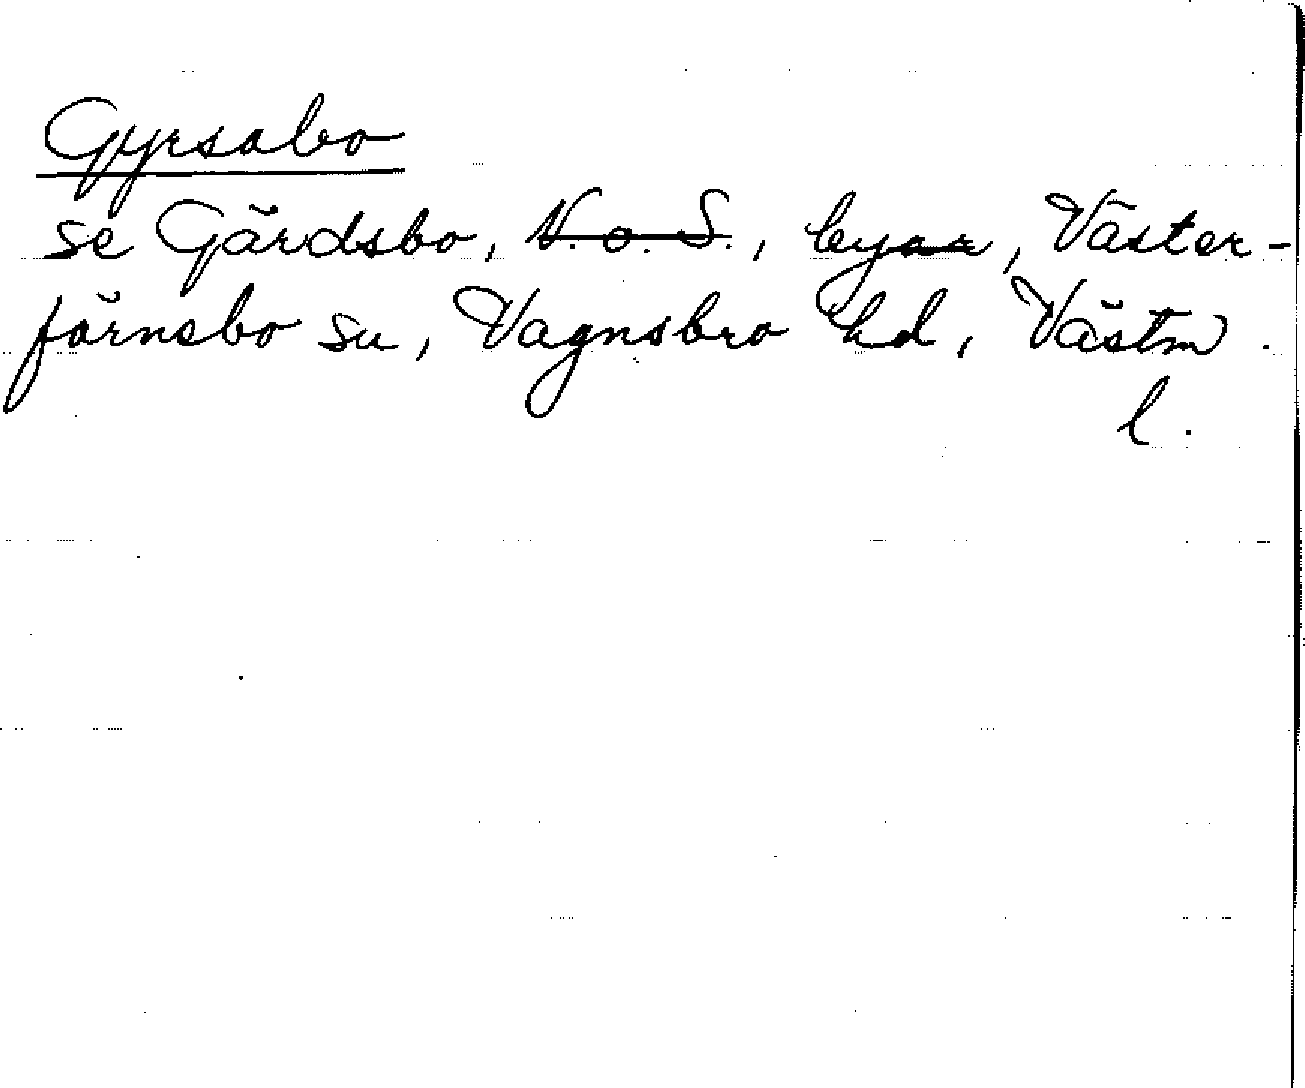 Gyrsabo
se Gärdsbo, N. o. S., byar, Väster-
färnebo sn, Vagnsbro hd, Västm.
l.